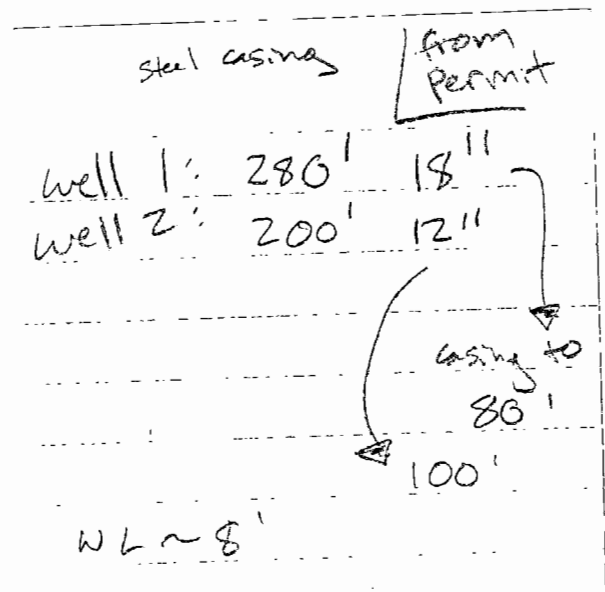 steel casing
from
permit
well 1: 280' 18"
well 2: 200' 12"
casing to
80'
100'
WL ~ 8'